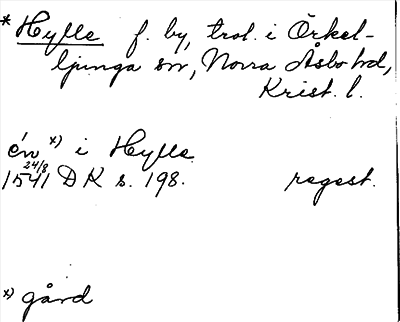 *Hylle f. by, trol. i Örkel-
ljunga sn, Norra Åsbo hd,
Krist. l.
én x) i Hylle
24/8
1541 DK s. 198. regest.
x) gård